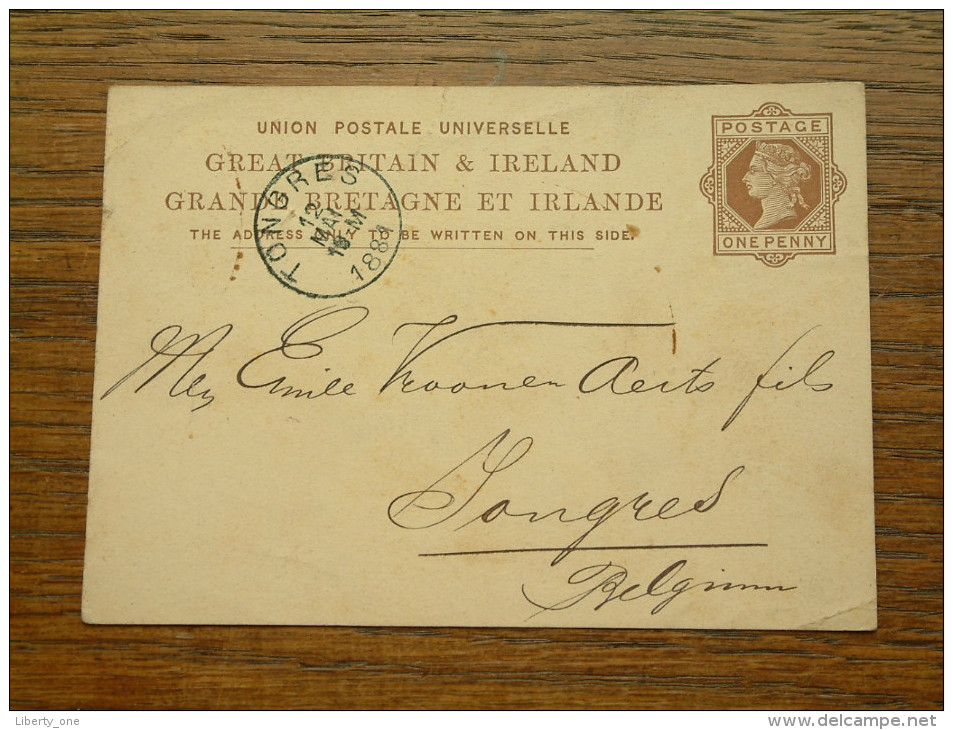 UNION POSTALE UNIVERSELLE
GREAT BRITAIN & IRELAND
GRANDE BRETAGNE ET IRLANDE
THE ADDRESS ONLY TO BE WRITTEN ON THIS SIDE.
POSTAGE
ONE PENNY
TONGRES
12
MAI
1881
Emile Vroonen Aerts fils
Tongres
Belgium
Liberty_one
www.delcampe.net